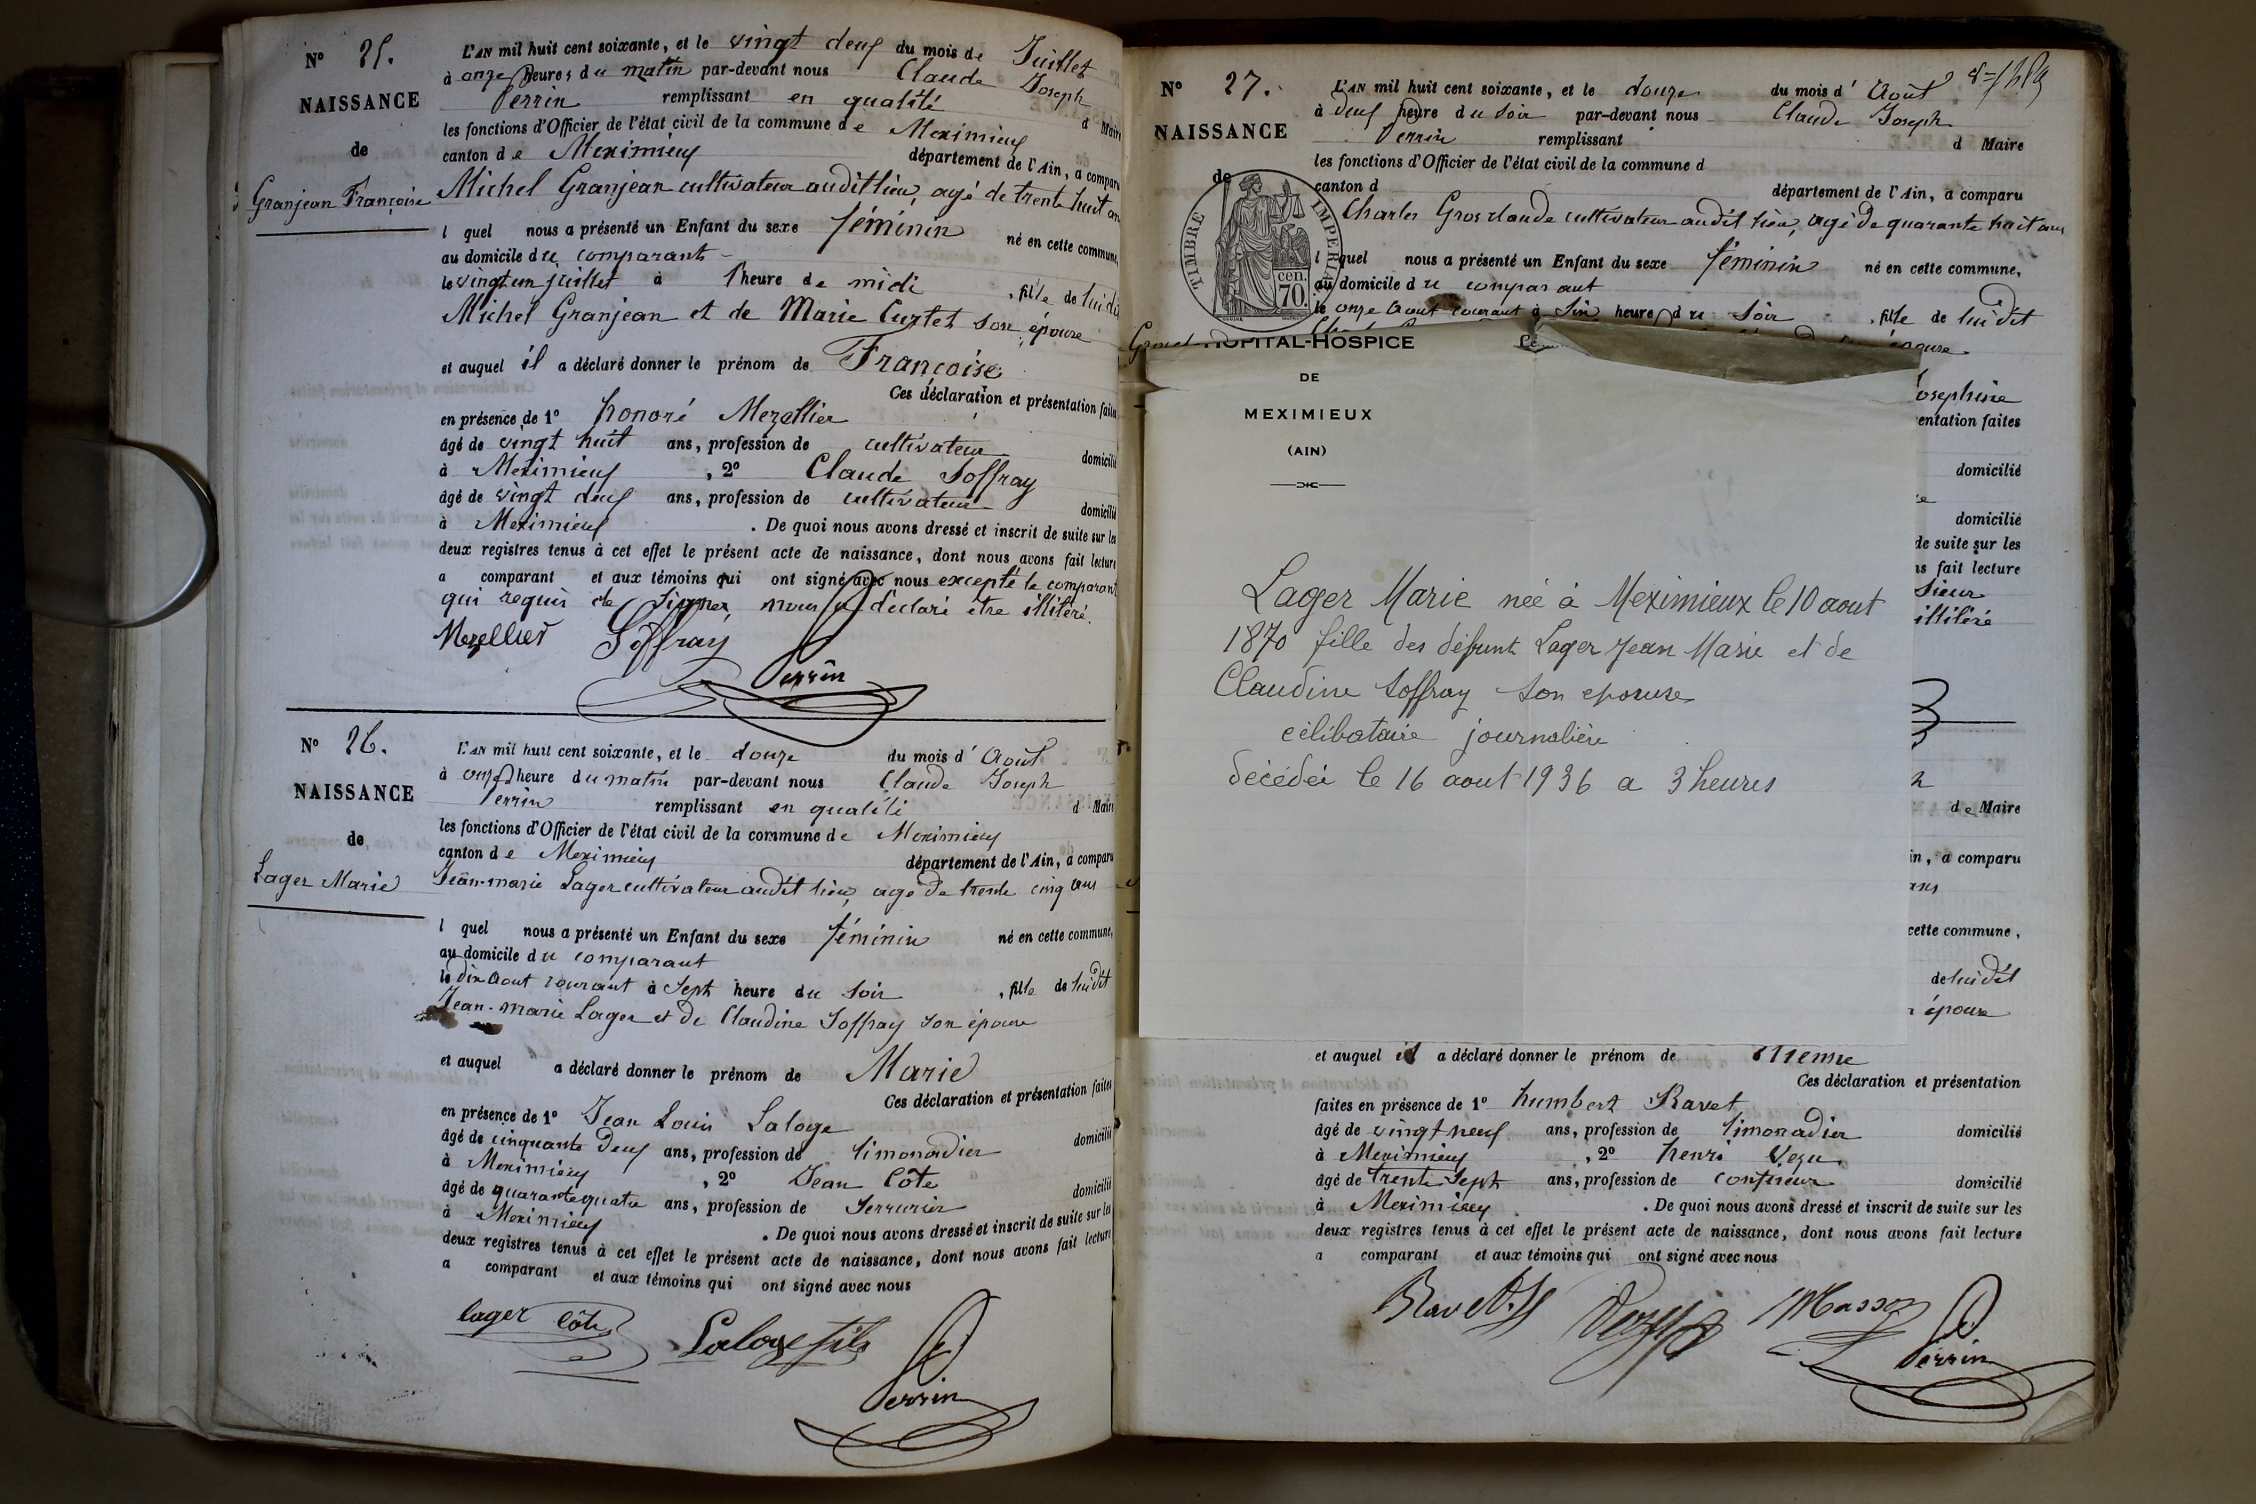 N° 25.
NAISSANCE
de
Granjean Françoise
L'AN mil huit cent soixante, et le vingt deux du mois de Juillet
à onze heures du matin par-devant nous Claude Joseph
Perrin remplissant en qualité d Maire
les fonctions d'Officier de l'état civil de la commune de Meximieux
canton de Meximieux département de l'Ain, a comparu
Michel Granjean cultivateur audit lieu, agé de trente huit ans
l quel nous a présenté un Enfant du sexe féminin né en cette commune,
au domicile du comparant
le vingt un juillet à l'heure de midi, fille de lui dit
Michel Granjean et de Marie Curtet son épouse
et auquel il a déclaré donner le prénom de Françoise
Ces déclaration et présentation faites
en présence de 1° honoré Mezellier
âgé de vingt huit ans, profession de cultivateur domicilié
à Meximieux, 2° Claude Soffray
âgé de vingt deux ans, profession de cultivateur domicilié
à Meximieux. De quoi nous avons dressé et inscrit de suite sur les
deux registres tenus à cet effet le présent acte de naissance, dont nous avons fait lecture
a comparant et aux témoins qui ont signé avec nous excepté le comparant
qui requis de signer nous a déclaré être illitéré.
Mezellier Soffray
Perrin
N° 26.
NAISSANCE
de
Lager Marie
L'AN mil huit cent soixante, et le douze du mois d' Août
à onze heure du matin par-devant nous Claude Joseph
Perrin remplissant en qualité d Maire
les fonctions d'Officier de l'état civil de la commune de Meximieux
canton de Meximieux département de l'Ain, a comparu
Jean-marie Lager cultivateur audit lieu, age de trente cinq ans
l quel nous a présenté un Enfant du sexe féminin né en cette commune,
au domicile du comparant
le dix aout courant à sept heure du soir, fille de lui dit
Jean-marie Lager et de Claudine Soffray son épouse
et auquel a déclaré donner le prénom de Marie
Ces déclaration et présentation faites
en présence de 1° Jean Louis Laloge
âgé de cinquante deux ans, profession de limonadier domicilié
à Meximieux, 2° Jean Côte
âgé de quarante quatre ans, profession de Serrurier domicilié
à Meximieux. De quoi nous avons dressé et inscrit de suite sur les
deux registres tenus à cet effet le présent acte de naissance, dont nous avons fait lecture
a comparant et aux témoins qui ont signé avec nous
lager Côte Laloge fils
Perrin
N° 27.
NAISSANCE
de
TIMBRE IMPERIAL
70. cen.
L'AN mil huit cent soixante, et le douze du mois d' Août
à deux heure du soir par-devant nous Claude Joseph
Perrin remplissant d Maire
les fonctions d'Officier de l'état civil de la commune d
canton d département de l'Ain, a comparu
Charles Grosclaude cultivateur audit lieu, agé de quarante huit ans
l quel nous a présenté un Enfant du sexe féminin né en cette commune,
au domicile du comparant
le onze Aout courant à Six heure du Soir, fille de lui dit
épouse
Josephine
entation faites
domicilié
domicilié
de suite sur les
ns fait lecture
Sieur
illitéré
HOPITAL-HOSPICE
DE
MEXIMIEUX
(AIN)
Lager Marie née à Meximieux le 10 aout
1870 fille des défunt Lager Jean Marie et de
Claudine Soffray son epouse
célibataire journalière
décédée le 16 aout 1936 a 3 heures
de Maire
in, a comparu
ans
cette commune,
de lui dit
épouse
et auquel il a déclaré donner le prénom de Etienne
Ces déclaration et présentation
faites en présence de 1° humbert Ravet
âgé de vingt neuf ans, profession de limonadier domicilié
à Meximieux, 2° henri Vezu
âgé de trente sept ans, profession de confiseur domicilié
à Meximieux. De quoi nous avons dressé et inscrit de suite sur les
deux registres tenus à cet effet le présent acte de naissance, dont nous avons fait lecture
a comparant et aux témoins qui ont signé avec nous
Ravet Masson
Perrin